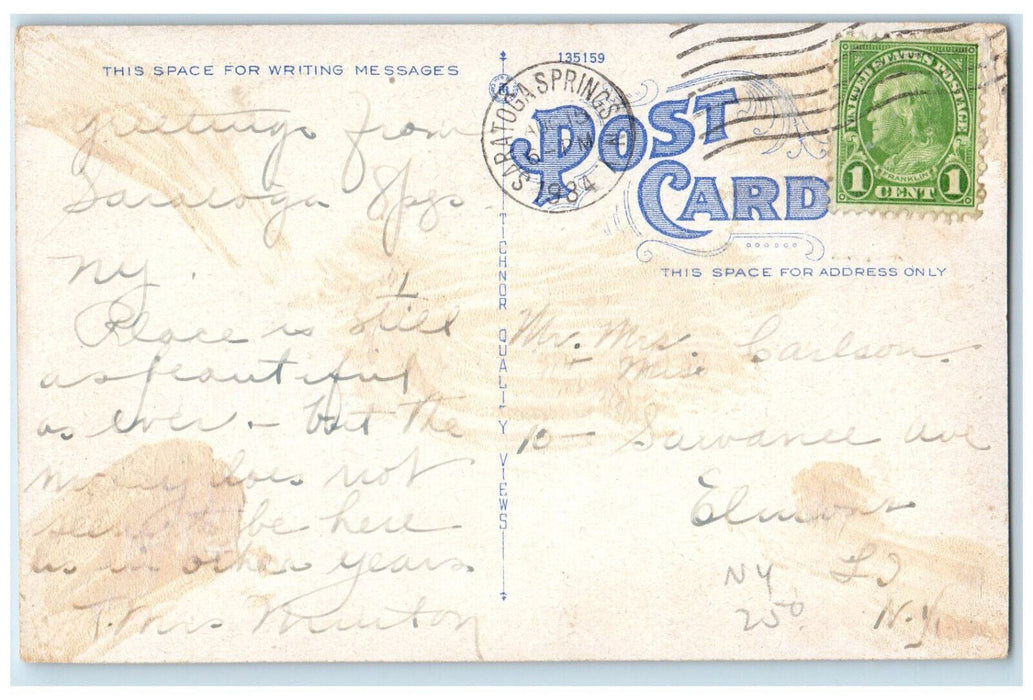 THIS SPACE FOR WRITING MESSAGES
greetings from
Saratoga Spgs
NY.
Place is still
as beautiful
as ever - but the
money does not
seem to be here
as in other years.
Mrs
135159
POST
CARD
SARATOGA SPRINGS N.Y.
1934
UNITED STATES POSTAGE
FRANKLIN
1 CENT 1
THIS SPACE FOR ADDRESS ONLY
TICHNOR QUALITY VIEWS
Mr. Mrs. Carlson
+ Miss
Ave
Elmont
L I
N.Y.
NY
250